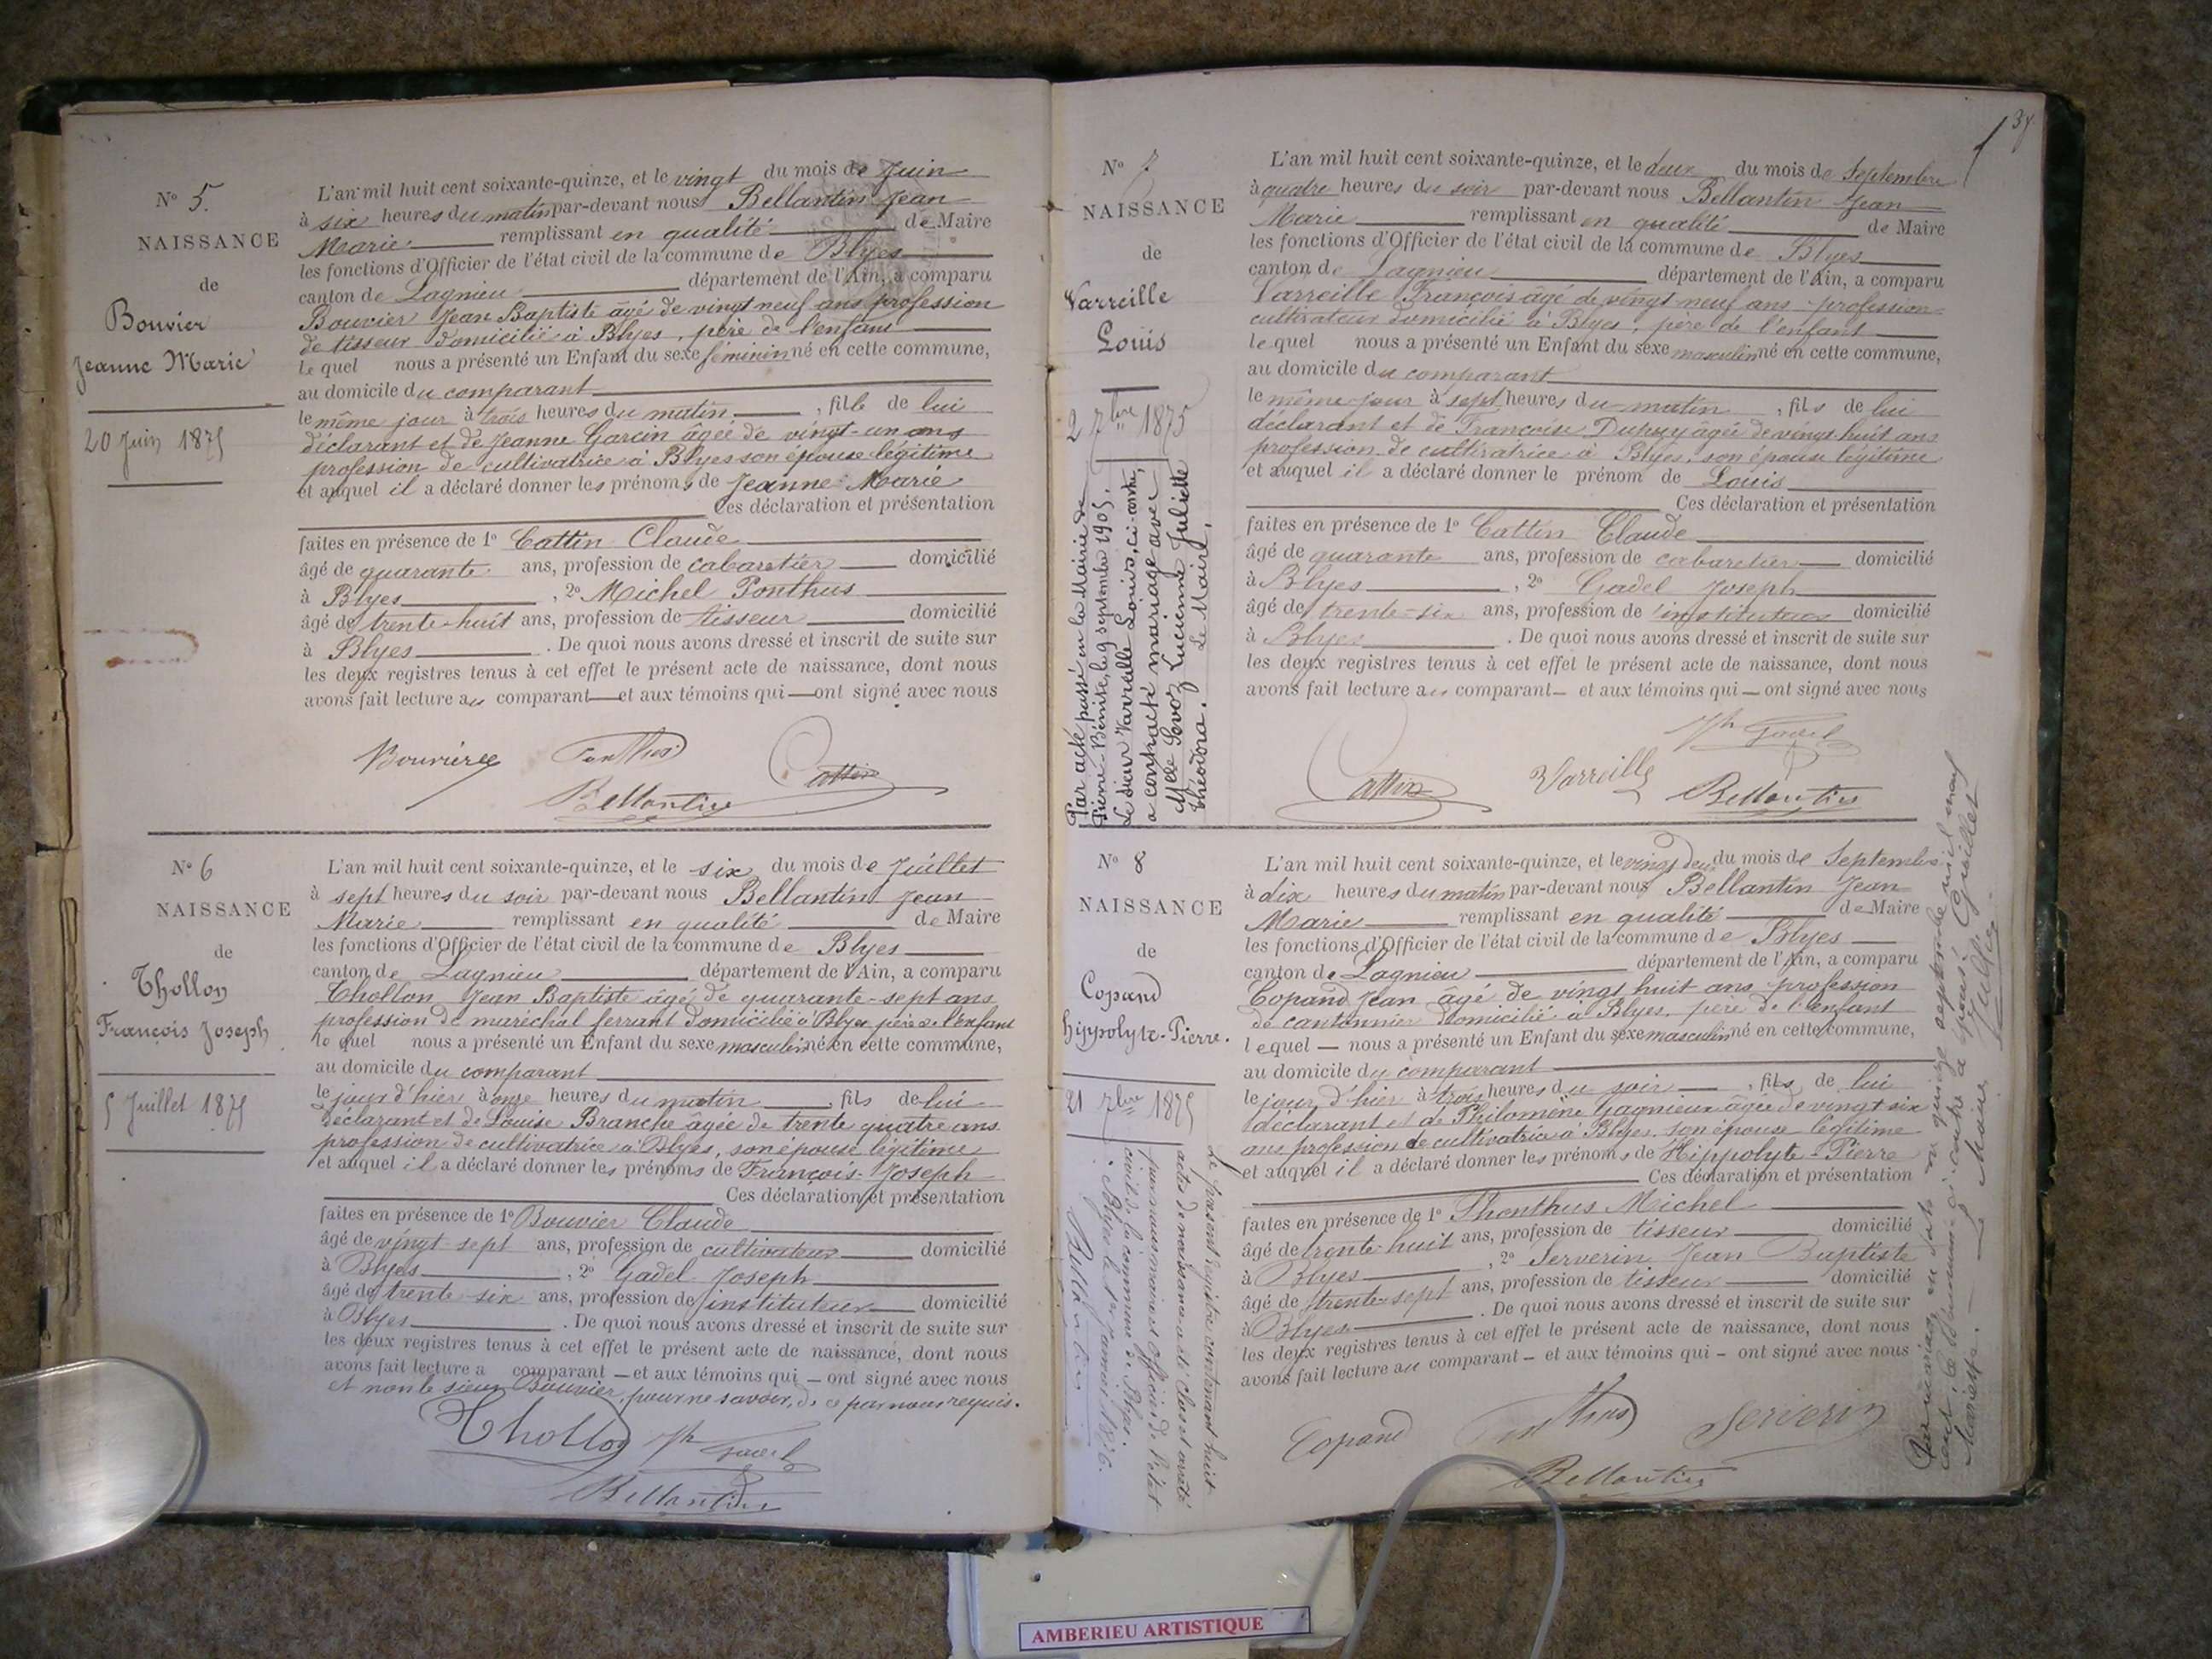 N° 5.
NAISSANCE
de
Bouvier
Jeanne Marie
20 Juin 1875
L'an mil huit cent soixante-quinze, et le vingt du mois de Juin
à six heures du matin par-devant nous Bellantin Jean
Marie remplissant en qualité de Maire
les fonctions d'Officier de l'état civil de la commune de Blyes
canton de Lagnieu département de l'Ain, a comparu
Bouvier Jean Baptiste âgé de vingt neuf ans profession
de tisseur domicilié à Blyes, père de l'enfant
Le quel nous a présenté un Enfant du sexe féminin né en cette commune,
au domicile du comparant
le même jour à trois heures du matin, fille de lui
déclarant et de Jeanne Garcin âgée de vingt-un ans
profession de cultivatrice à Blyes son épouse légitime
et auquel il a déclaré donner les prénoms de Jeanne-Marie
Ces déclaration et présentation
faites en présence de 1° Cattin Claude
âgé de quarante ans, profession de cabaretier domicilié
à Blyes, 2° Michel Ponthus
âgé de trente-huit ans, profession de tisseur domicilié
à Blyes. De quoi nous avons dressé et inscrit de suite sur
les deux registres tenus à cet effet le présent acte de naissance, dont nous
avons fait lecture au comparant et aux témoins qui ont signé avec nous
Ponthus
Cattin
Bellantin
N° 6
NAISSANCE
de
Thollon
François Joseph
5 Juillet 1875
L'an mil huit cent soixante-quinze, et le six du mois de Juillet
à sept heures du soir par-devant nous Bellantin Jean
Marie remplissant en qualité de Maire
les fonctions d'Officier de l'état civil de la commune de Blyes
canton de Lagnieu département de l'Ain, a comparu
Thollon Jean Baptiste âgé de quarante-sept ans
profession de maréchal ferrant domicilié à Blyes père de l'enfant
le quel nous a présenté un Enfant du sexe masculin né en cette commune,
au domicile du comparant
le jour d'hier à onze heures du matin, fils de lui
déclarant et de Louise Branche âgée de trente quatre ans
profession de cultivatrice à Blyes, son épouse légitime
et auquel il a déclaré donner les prénoms de François-Joseph
Ces déclaration et présentation
faites en présence de 1° Bouvier Claude
âgé de vingt-sept ans, profession de cultivateur domicilié
à Blyes, 2° Gadel Joseph
âgé de trente-six ans, profession de instituteur domicilié
à Blyes. De quoi nous avons dressé et inscrit de suite sur
les deux registres tenus à cet effet le présent acte de naissance, dont nous
avons fait lecture a comparant et aux témoins qui ont signé avec nous
et non le sieur Bouvier, pour ne savoir, de ce par nous requis.
Thollon Jh Gadel
Bellantin
37
N° 7
NAISSANCE
de
Varreille
Louis
2 7bre 1875
Par acte passé en la Mairie de
Pierre-Bénite, le 9 septembre 1905,
Le sieur Varreille Louis, ci-contre,
a contracté mariage avec
Melle Sevoz Lucienne Juliette
Théodora. Le Maire,
L'an mil huit cent soixante-quinze, et le deux du mois de Septembre
à quatre heures du soir par-devant nous Bellantin Jean
Marie remplissant en qualité de Maire
les fonctions d'Officier de l'état civil de la commune de Blyes
canton de Lagnieu département de l'Ain, a comparu
Varreille François âgé de vingt neuf ans profession
cultivateur domicilié à Blyes, père de l'enfant
le quel nous a présenté un Enfant du sexe masculin né en cette commune,
au domicile du comparant
le même jour à sept heures du matin, fils de lui
déclarant et de Françoise Dupuy âgée de vingt huit ans
profession de cultivatrice à Blyes, son épouse légitime
et auquel il a déclaré donner le prénom de Louis
Ces déclaration et présentation
faites en présence de 1° Cattin Claude
âgé de quarante ans, profession de cabaretier domicilié
à Blyes, 2° Gadel Joseph
âgé de trente-six ans, profession de instituteur domicilié
à Blyes. De quoi nous avons dressé et inscrit de suite sur
les deux registres tenus à cet effet le présent acte de naissance, dont nous
avons fait lecture au comparant et aux témoins qui ont signé avec nous
Jh Gadel
Cattin Varreille
Bellantin
N° 8
NAISSANCE
de
Copand
Hippolyte-Pierre.
21 7bre 1875
Le présent registre contenant huit
actes de naissance a été clos et arrêté
par nous maire et officier de l'état
civil de la commune de Blyes.
Blyes le 1er Janvier 1876.
Bellantin
L'an mil huit cent soixante-quinze, et le vingt deux du mois de Septembre
à dix heures du matin par-devant nous Bellantin Jean
Marie remplissant en qualité de Maire
les fonctions d'Officier de l'état civil de la commune de Blyes
canton de Lagnieu département de l'Ain, a comparu
Copand Jean âgé de vingt huit ans profession
de cantonnier domicilié à Blyes, père de l'enfant
lequel nous a présenté un Enfant du sexe masculin né en cette commune,
au domicile du comparant
le jour d'hier à trois heures du soir, fils de lui
déclarant et de Philomène Gagnieux âgée de vingt six
ans profession de cultivatrice à Blyes, son épouse légitime
et auquel il a déclaré donner les prénoms de Hippolyte-Pierre
Ces déclaration et présentation
faites en présence de 1° Phonthus Michel
âgé de trente huit ans, profession de tisseur domicilié
à Blyes, 2° Serverin Jean Baptiste
âgé de trente-sept ans, profession de tisseur domicilié
à Blyes. De quoi nous avons dressé et inscrit de suite sur
les deux registres tenus à cet effet le présent acte de naissance, dont nous
avons fait lecture au comparant – et aux témoins qui – ont signé avec nous
Copand Ponthus Serverin
Bellantin
Par mariage en date du quinze septembre mil neuf
cent, le dénommé ci-contre a épousé Guillet
Mariette. Le Maire
AMBERIEU ARTISTIQUE